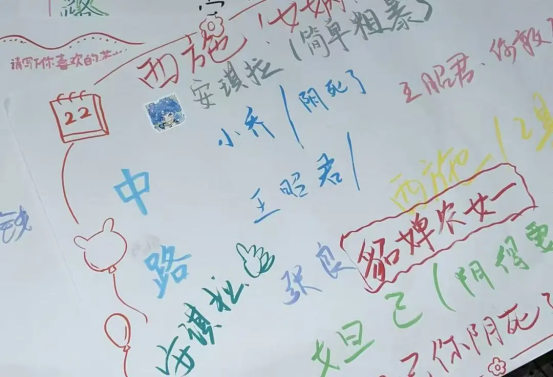 路
请写下你喜欢的英
西施
安琪拉(简单粗暴)
22
小乔/阴死了
王昭君
中
王昭君/
西施
路
张良
貂蝉农女一
安琪拉
妲己(阴得
己你阴死了